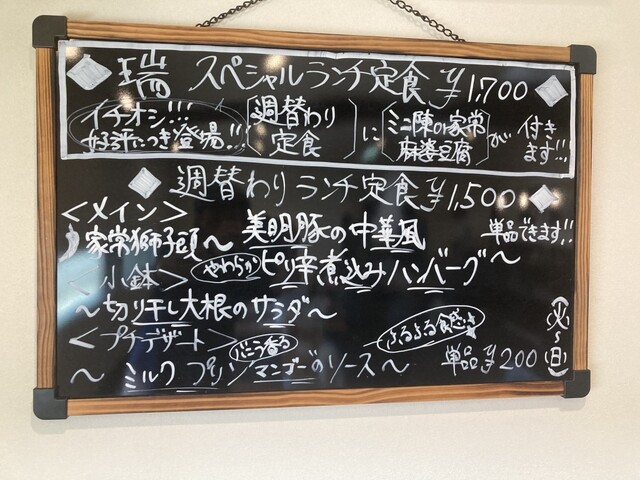 瑞 スペシャルランチ定食 ¥1,700
イチオシ!!! 好評につき登場!! 週替わり定食 に ミニ陳or家常麻婆豆腐 が 付きます!!
週替わりランチ定食 ¥1,500
<メイン>
家常獅子頭～美明豚の中華風 単品できます!!
やわらか ピリ辛煮込みハンバーグ～
<小鉢>
～切り干し大根のサラダ～
<プチデザート> バニラ香る ぷるぷる食感
～ミルクプリンマンゴーのソース～ 単品¥200
(火～日)